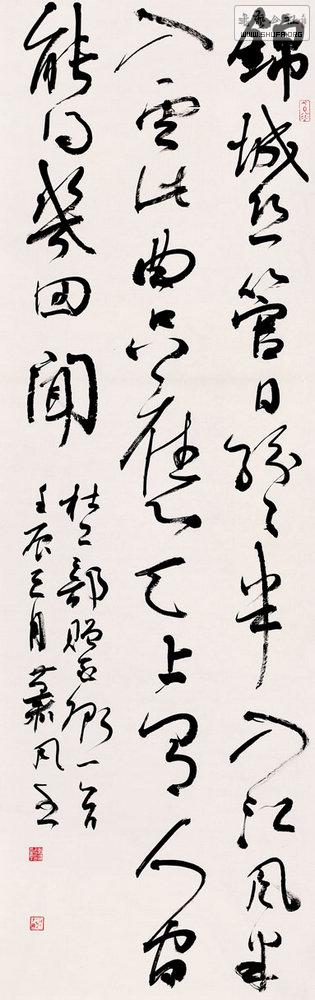 錦城絲管日紛紛半入江風半
入雲此曲只應天上有人間
能得幾回聞
杜工部贈花卿一首
壬辰三月
WWW.SHUFA.ORG